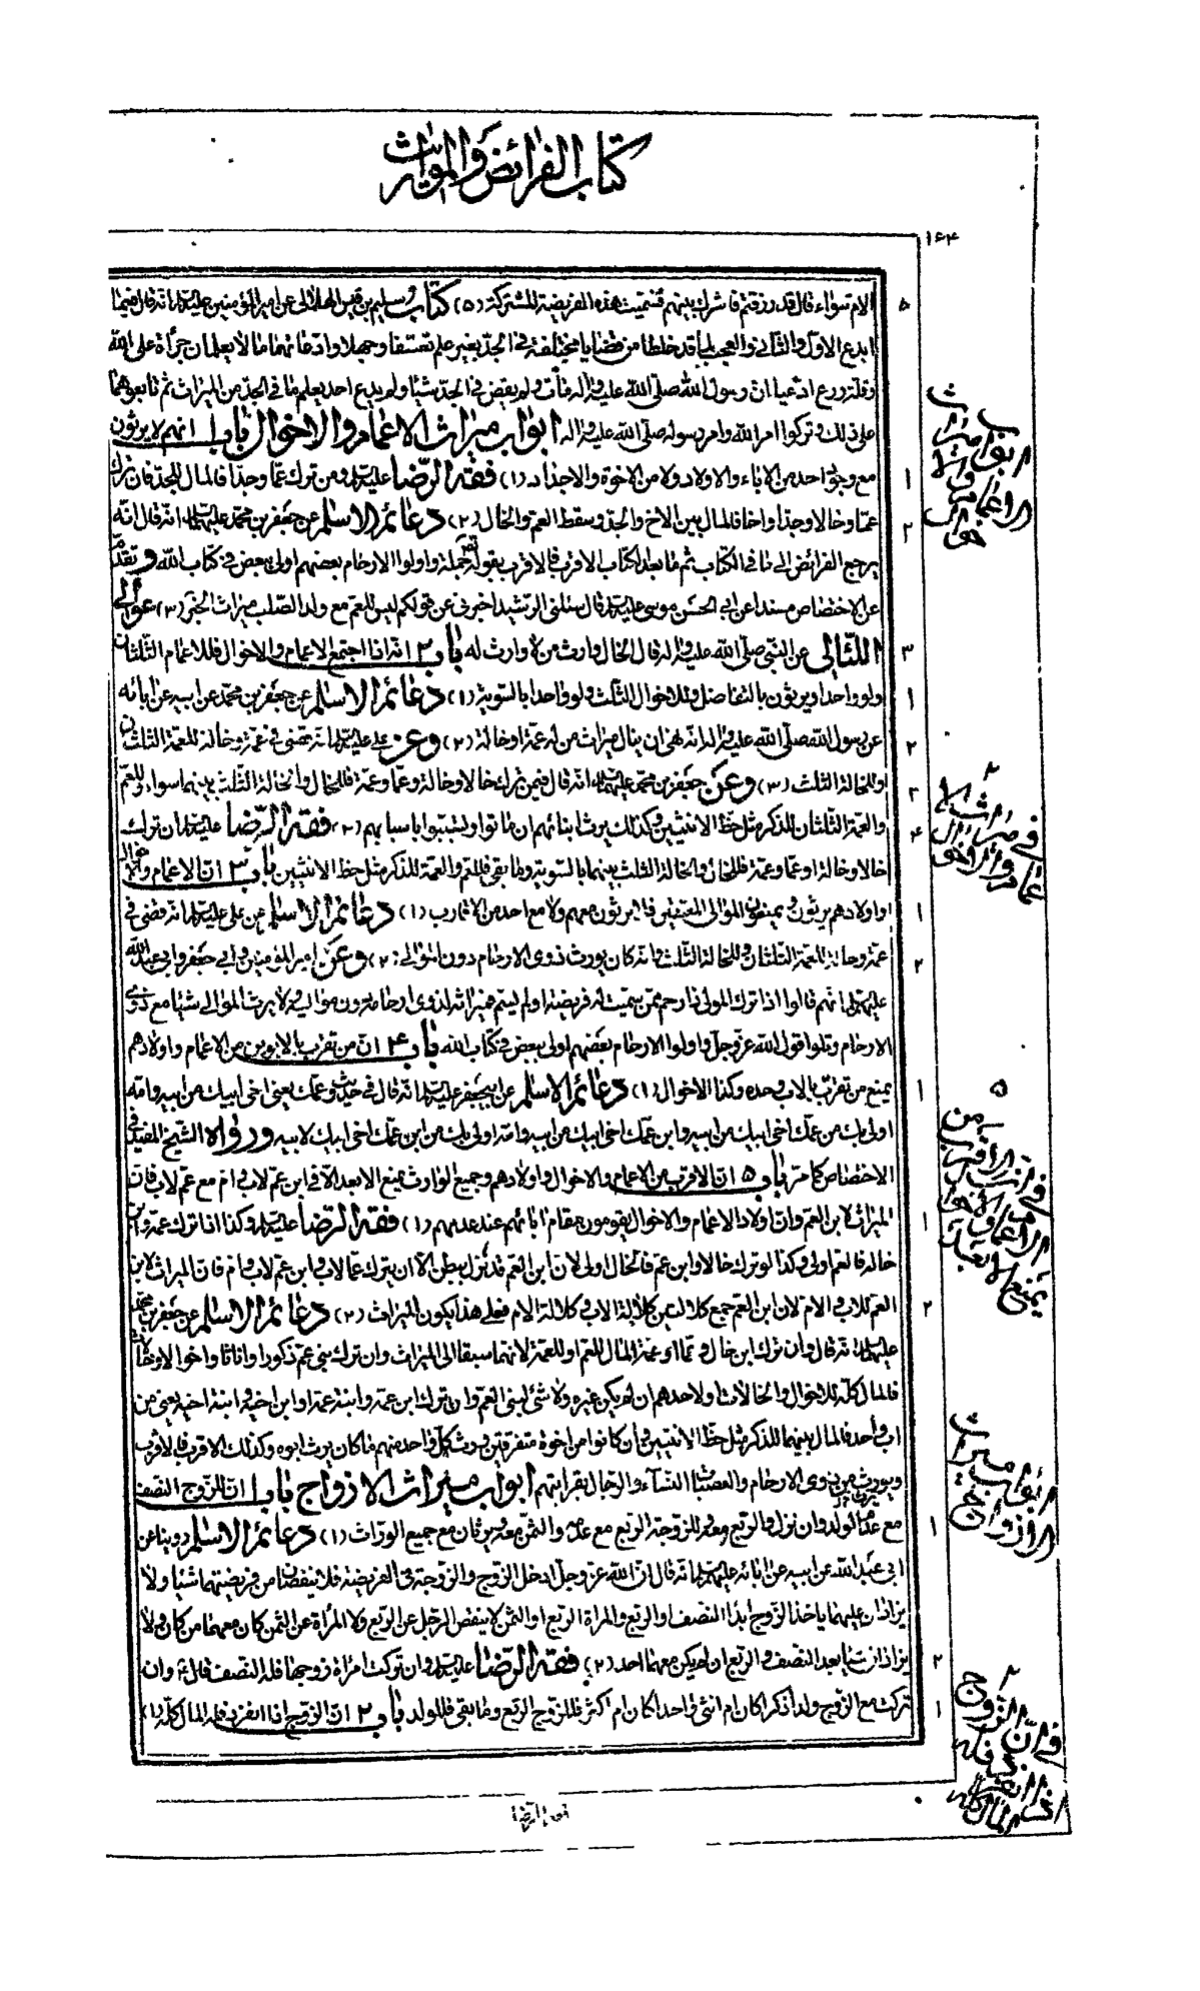 كتاب الفرائض والمواريث
١٦٤
الام سواء قال قد رزقتم فاشرك بينهم فسميت هذه الفريضة المشتركة (٥) كتاب سليم بن قيس الهلالي عن امير المؤمنين عليه السلم انه قال فيما
ابدع الاول والثاني والعجب لما قد خلطا من قضايا مختلفة في الجد بغير علم تعسفا وجهلا وادعائهما ما لا يعلمان جرأة على الله
وقلة ورع ادعيا ان رسول الله صلى الله عليه واله مات ولم يقض في الجد شيئا ولم يدع احد يعلم ما في الجد من الميراث ثم تابعوهما
على ذلك وتركوا امر الله وامر رسوله صلى الله عليه واله ابواب ميراث الاعمام والاخوال باب ١ انهم لا يرثون
مع وجود احد من الاباء والاولاد ولا من الاخوة والاجداد (١) فقه الرضا عليه السلم ومن ترك عما وجدا فالمال للجد فان ترك
عما وخالا وجدا واخا فالمال بين الاخ والجد وسقط العم والخال (٢) دعائم الاسلم عن جعفر بن محمد عليهما السلم انه قال انه
يرجع الفرائض الى ما في الكتاب ثم ما بعد الكتاب الاقرب فالاقرب بقوله عز وجل واولوا الارحام بعضهم اولى ببعض في كتاب الله وتقدم
عن الاختصاص مسندا عن ابي الحسن موسى عليه السلم قال سئلني الرشيد اخبرني عن قولكم ليس للعم مع ولد الصلب ميراث الخبر (٣) عوالي
اللئالي عن النبي صلى الله عليه واله قال الخال وارث من لا وارث له باب ٢ انه اذا اجتمع الاعمام والاخوال فللاعمام الثلثان
ولو واحدا ويرثون بالتفاضل وللاخوال الثلث ولو واحدا بالسوية (١) دعائم الاسلم عن جعفر بن محمد عن ابيه عن ابائه
عن رسول الله صلى الله عليه واله انه نهى ان ينال ميراث من له عمة او خالة (٢) وعن علي عليه السلم انه قضى في عمة وخالة للعمة الثلثان
وللخالة الثلث (٣) وعن جعفر بن محمد عليهما السلم انه قال فيمن ترك خالا وخالة وعما وعمة فللخال والخالة الثلث بينهما سواء وللعم
والعمة الثلثان للذكر مثل حظ الانثيين وكذلك يرث ابنائهم ان ماتوا وتسببوا باسبابهم (٤) فقه الرضا عليه السلم فان ترك
خالا وخالة وعما وعمة فللخال والخالة الثلث بينهما بالسوية وما بقي فللعم والعمة للذكر مثل حظ الانثيين باب ٣ ان الاعمام والاخوال
او اولادهم يرثون ويمنعون الموالي المعتقين فلا يرثون معهم ولا مع احد من الاقارب (١) دعائم الاسلم عن علي عليه السلم انه قضى في
عمة وخالة للعمة الثلثان وللخالة الثلث وانه كان يورث ذوى الارحام دون الموالي (٢) وعن امير المؤمنين وابي جعفر وابي عبد الله
عليهم السلم انهم قالوا اذا ترك المولى ذا رحم ممن سميت له فريضة او لم يسم فميراثه لذوى ارحامه دون مواليه ولا يرث الموالي شيئا مع ذوي
الارحام وتلوا قول الله عز وجل واولوا الارحام بعضهم اولى ببعض في كتاب الله باب ٤ ان من تقرب بالابوين من الاعمام واولادهم
يمنع من تقرب بالاب وحده وكذا الاخوال (١) دعائم الاسلم عن ابي جعفر عليه السلم انه قال في حديث وعمك يعني اخى ابيك من ابيه وامه
اولى بك من عمك اخى ابيك من ابيه وابن عمك اخى ابيك من ابيه وامه اولى بك من ابن عمك اخى ابيك لابيه ورواه الشيخ المفيد في
الاختصاص كما مر باب ٥ ان الاقرب من الاعمام والاخوال واولادهم وجميع الوارث يمنع الابعد الا في ابن عم لاب وام مع عم لاب فان
الميراث لابن العم وان اولاد الاعمام والاخوال يقومون مقام ابائهم عند عدمهم (١) فقه الرضا عليه السلم وكذا اذا ترك عمه وابن
خاله فالعم اولى وكذا لو ترك خالا وابن عم فالخال اولى لان ابن العم قد نزل ببطن الا ان يترك عما لاب وابن عم لاب وام فان الميراث لابن
العم للاب والام لان ابن العم جمع كلالتين كلالة الاب وكلالة الام فعلى هذا يكون الميراث (٢) دعائم الاسلم عن جعفر بن محمد
عليهما السلم انه قال وان ترك ابن خال وعما او عمة المال للعم او للعمة لانهما سبقا الى الميراث وان ترك بني عم ذكورا واناثا واخوالا وخالات
فالمال كله للاخوال والخالات ولاحدهم ان لم يكن غيره ولا شئ لبنى العم وان ترك ابن عمه وابنة عمه او ابن اخيه وابنة اخيه يعني من
اب واحد فالمال بينهما للذكر مثل حظ الانثيين وان كانوا من اخوة متفرقين ورث كل واحد منهم ما كان يرث ابوه وكذلك الاقرب فالاقرب
ويورث من ذوى الارحام والعصبات النساء والرجال بقرابتهم ابواب ميراث الازواج باب ١ ان للزوج النصف
مع عدم الولد وان نزل والربع معه وللزوجة الربع مع عدمه والثمن معه ويرثان مع جميع الوراث (١) دعائم الاسلم روينا عن
ابي عبد الله عن ابيه عن ابائه عليهم السلم انه قال ان الله عز وجل ادخل الزوج والزوجة في الفريضة فلا ينقصان من فريضتهما شيئا ولا
يزادان عليهما ياخذ الزوج ابدا النصف او الربع والمرأة الربع او الثمن لا ينقص الرجل عن الربع ولا المرأة عن الثمن كان معهما من كان ولا
يزادان شيئا بعد النصف والربع ان لم يكن معهما احد (٢) فقه الرضا عليه السلم وان تركت امرأة زوجها فله النصف وان
تركت مع الزوج ولدا ذكرا كان ام انثى واحدا كان ام اكثر فللزوج الربع وما بقي فللولد باب ٢ ان الزوج اذا انفرد فله المال كله (١)
ابواب ميراث الاعمام والاخوال
٢ في ميراث الاعمام والاخوال
٥
ابواب ميراث الازواج
٢